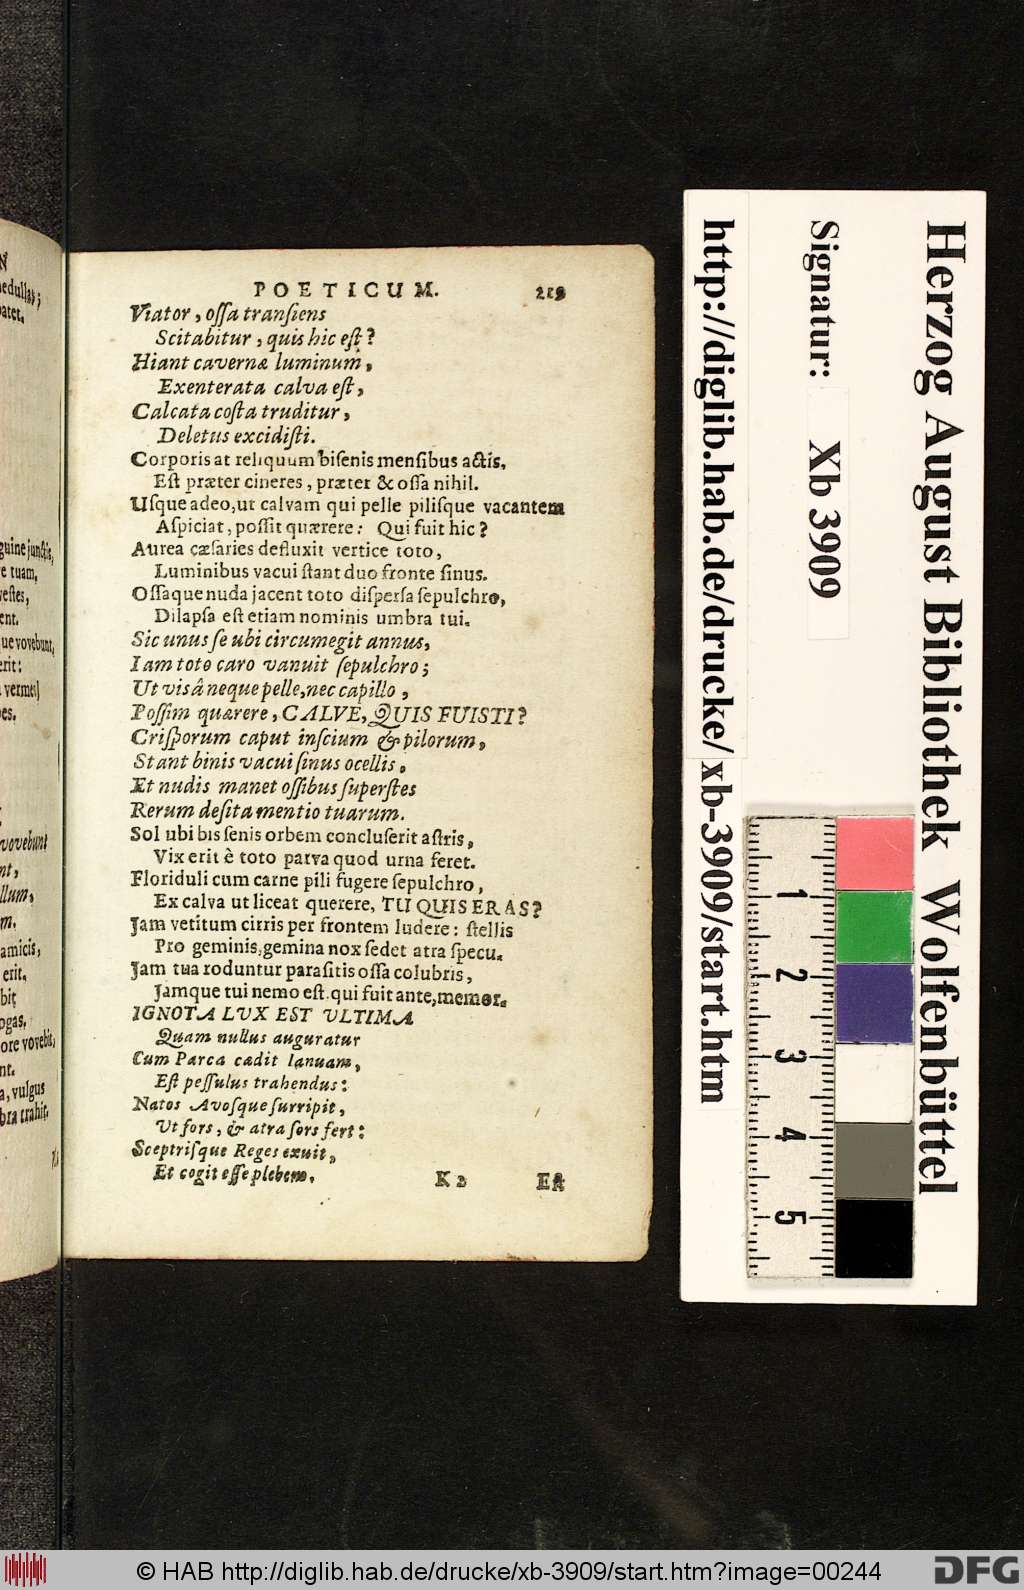 POETICUM. 219
Viator, ossa transiens
Scitabitur, quis hic est?
Hiant cavernæ luminum,
Exenterata calva est,
Calcata costa truditur,
Deletus excidisti.
Corporis at reliquum bisenis mensibus actis,
Est præter cineres, præter & ossa nihil.
Usque adeo, ut calvam qui pelle pilisque vacantem
Aspiciat, possit quærere: Qui fuit hic?
Aurea cæsaries defluxit vertice toto,
Luminibus vacui stant duo fronte sinus.
Ossaque nuda jacent toto dispersa sepulchro,
Dilapsa est etiam nominis umbra tui.
Sic unus se ubi circumegit annus,
Iam toto caro vanuit sepulchro;
Ut visâ neque pelle, nec capillo,
Possim quærere, CALVE, QUIS FUISTI?
Crisporum caput inscium & pilorum,
Stant binis vacui sinus ocellis,
Et nudis manet ossibus superstes
Rerum desita mentio tuarum.
Sol ubi bis senis orbem concluserit astris,
Vix erit è toto parva quod urna feret.
Floriduli cum carne pili fugere sepulchro,
Ex calva ut liceat querere, TU QUIS ERAS?
Jam vetitum cirris per frontem ludere: stellis
Pro geminis, gemina nox sedet atra specu.
Jam tua roduntur parasitis ossa colubris,
Jamque tui nemo est, qui fuit ante, memor.
IGNOTA LVX EST VLTIMA
Quam nullus auguratur
Cum Parca cædit Ianuam,
Est pessulus trahendus:
Natos Avosque surripit,
Ut fors, & atra sors fert:
Sceptrisque Reges exuit,
Et cogit esse plebem.
K 2 Est
N
medullas;
patet.
guine junctis,
e tuam,
vestes,
ent.
ue vovebunt,
erit:
vovebunt
nt,
llum,
m.
amicis,
erit.
bit
ore vovebit,
nt.
a, vulgus
bra trahit.
Herzog August Bibliothek Wolfenbüttel
Signatur: Xb 3909
http://diglib.hab.de/drucke/xb-3909/start.htm
1
2
3
4
5
© HAB http://diglib.hab.de/drucke/xb-3909/start.htm?image=00244
DFG